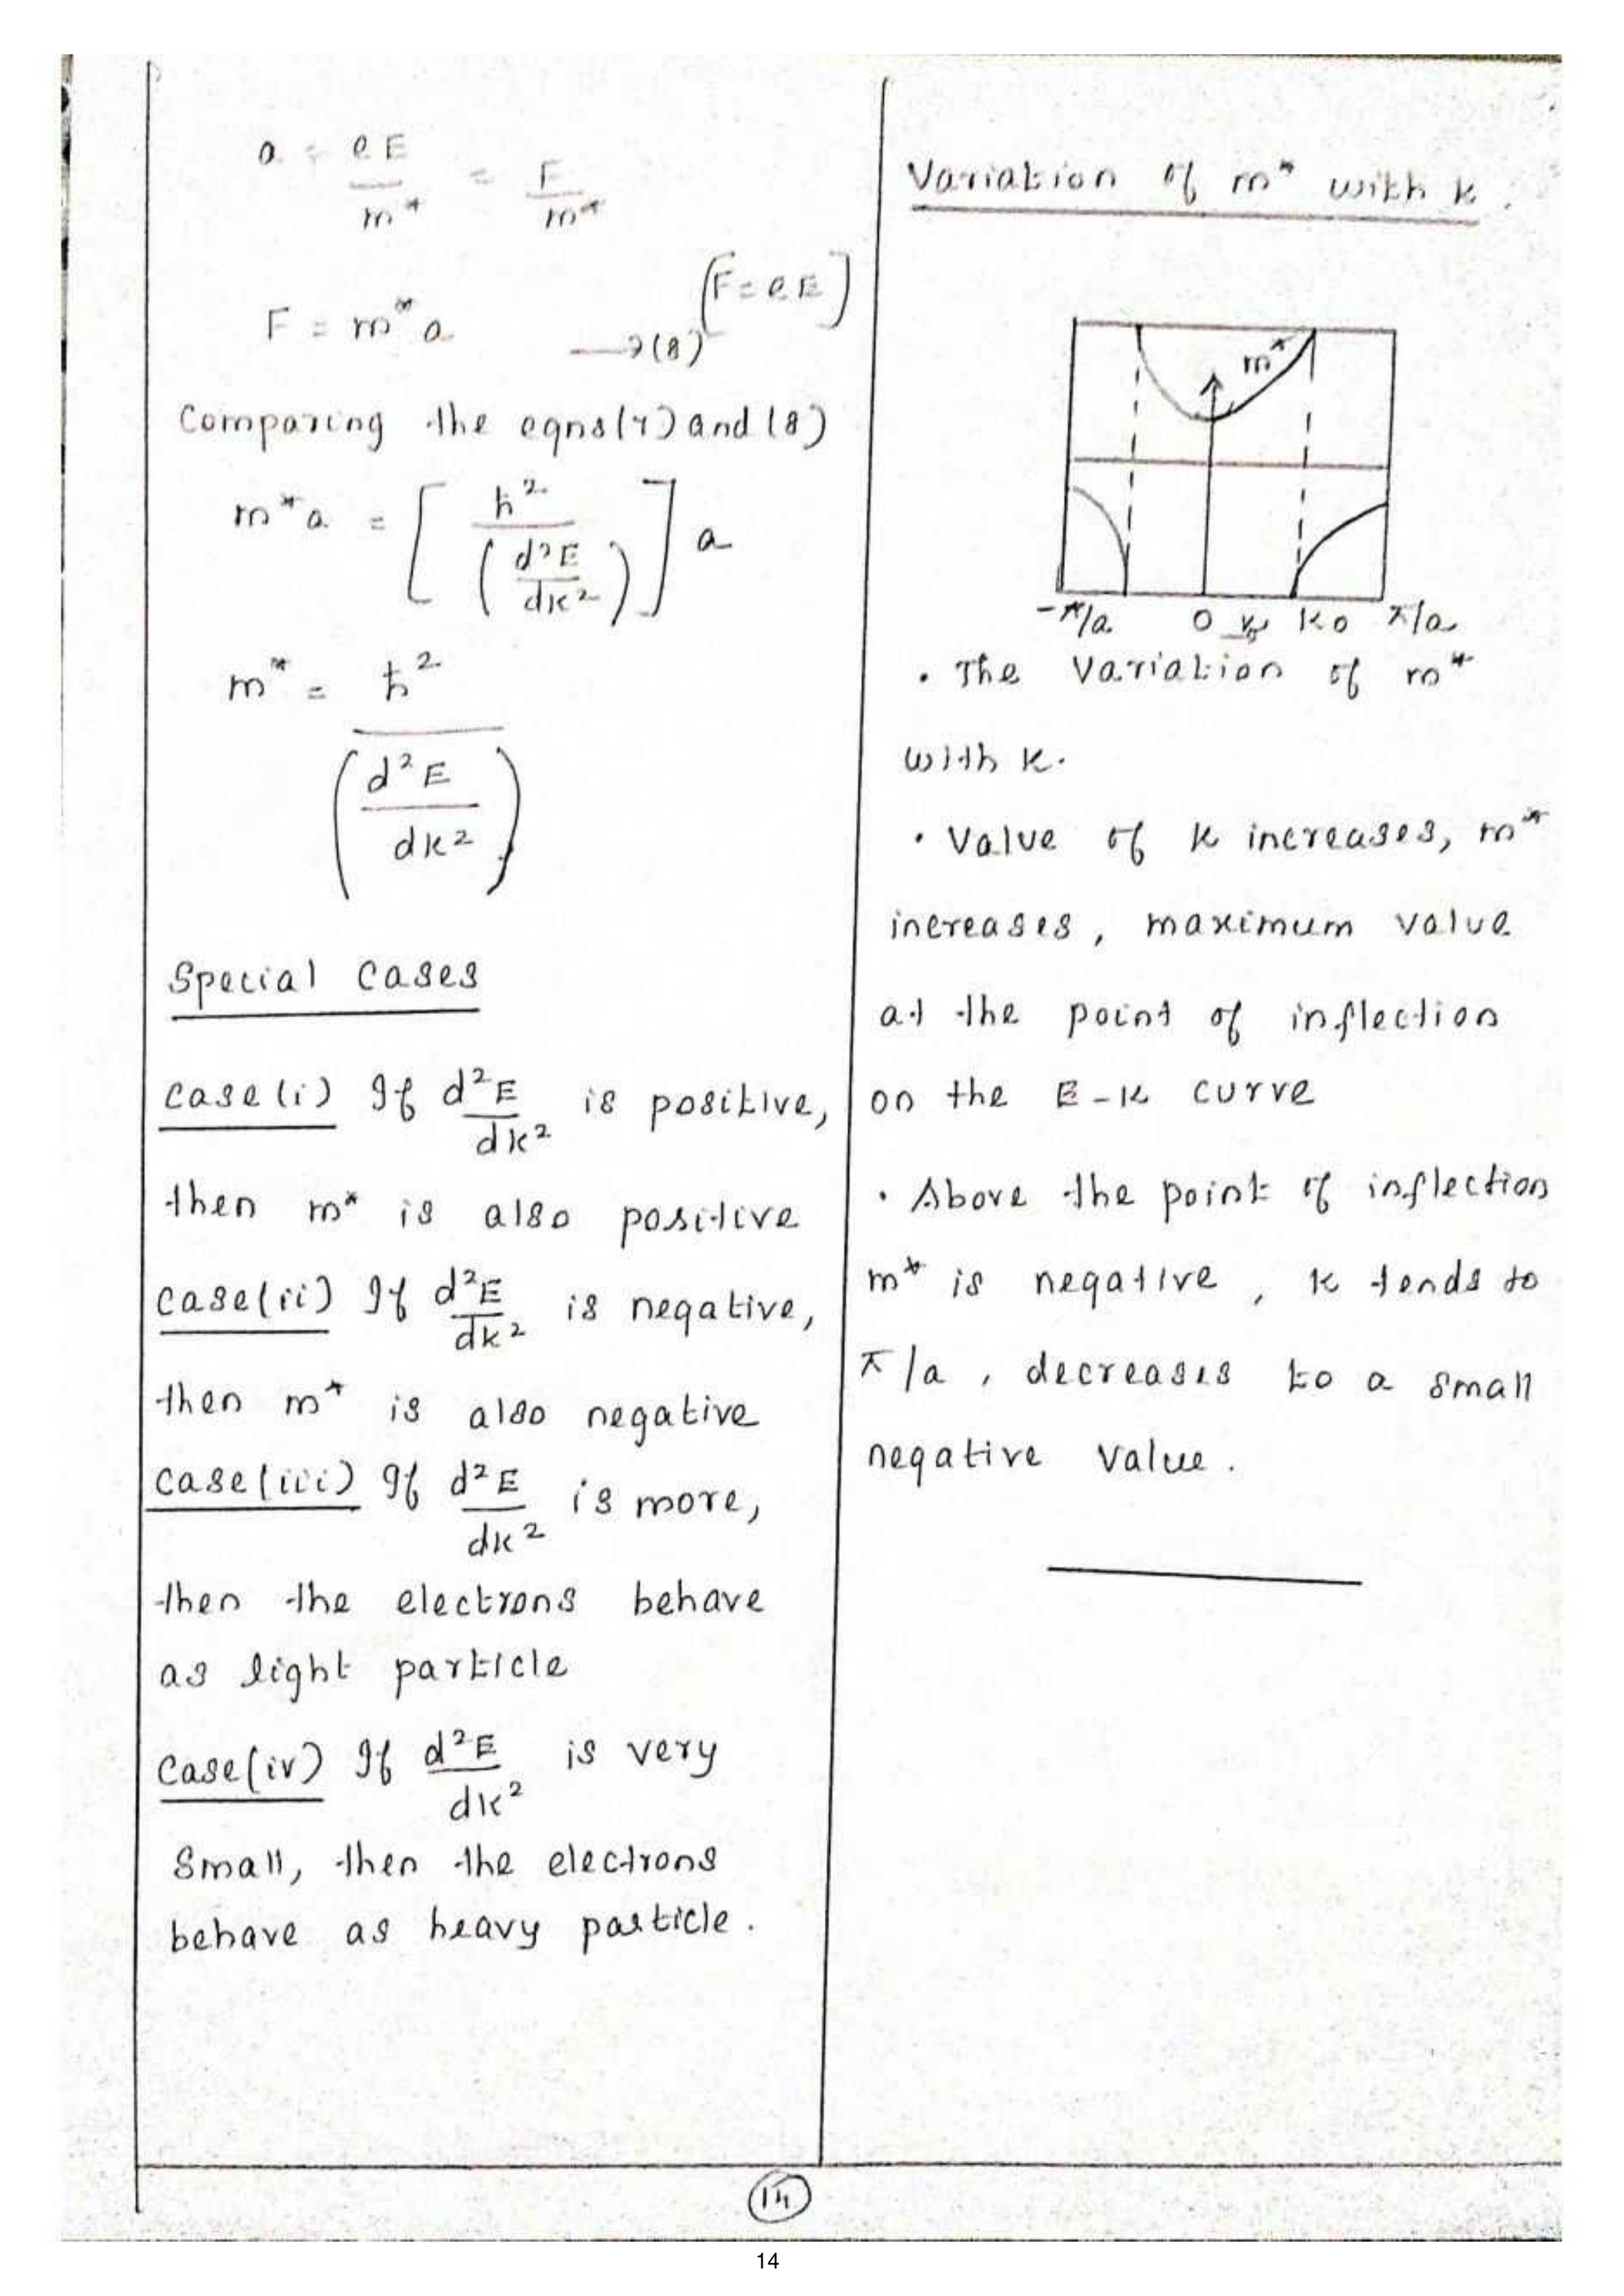 a = eE/m* = F/m*
[F = eE]
F = m* a ⟶ (8)
Comparing the eqns(7) and (8)
m* a = [ ħ² / (d²E/dk²) ] a
m* = ħ² / (d²E/dk²)
Special Cases
Case(i) If d²E/dk² is positive,
then m* is also positive
Case(ii) If d²E/dk² is negative,
then m* is also negative
Case(iii) If d²E/dk² is more,
then the electrons behave
as light particle
Case(iv) If d²E/dk² is very
Small, then the electrons
behave as heavy particle.
Variation of m* with k.
m*
-π/a 0 k k0 π/a
• The Variation of m*
with k.
• Value of k increases, m*
increases, maximum value
at the point of inflection
on the E-k curve
• Above the point of inflection
m* is negative, k tends to
π/a, decreases to a small
negative value.
14
14